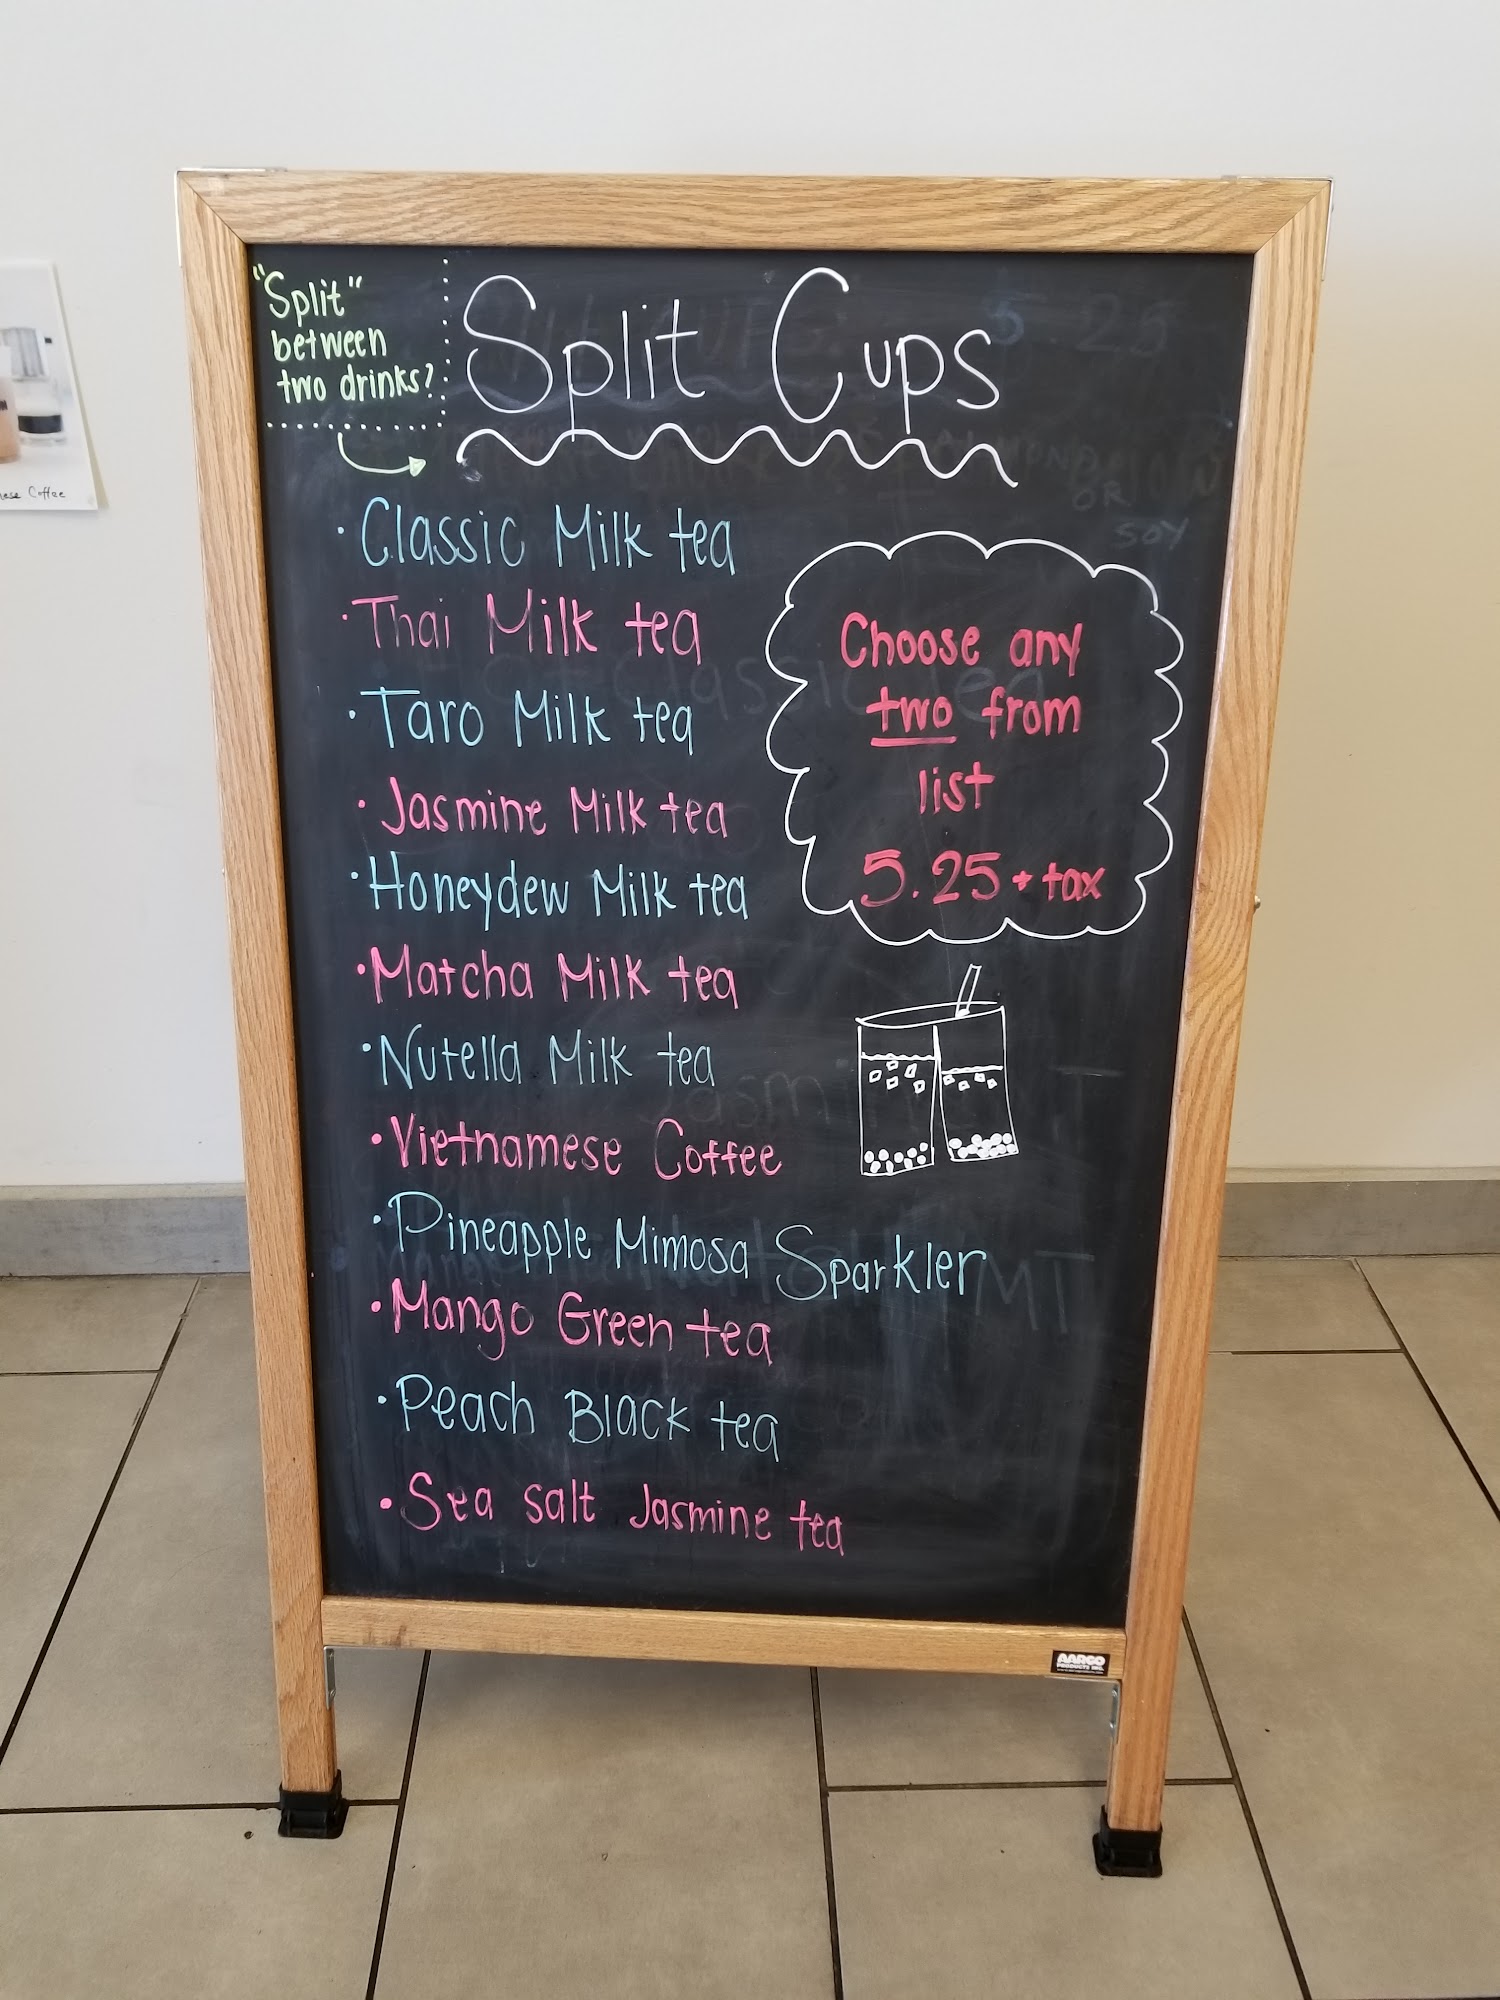 "Split"
between
two drinks?
Split Cups
· Classic Milk tea
· Thai Milk tea
· Taro Milk tea
· Jasmine Milk tea
· Honeydew Milk tea
· Matcha Milk tea
· Nutella Milk tea
· Vietnamese Coffee
· Pineapple Mimosa Sparkler
· Mango Green tea
· Peach Black tea
· Sea salt Jasmine tea
Choose any
two from
list
5.25 + tax
5.25
OR
SOY
Coffee
AARCO
PRODUCTS INC.